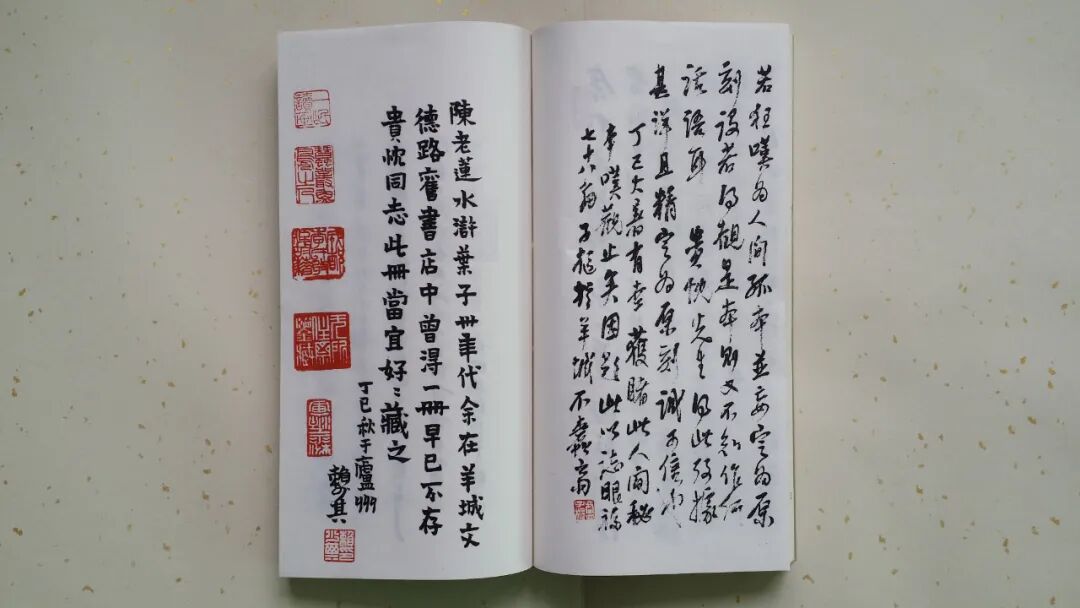 若狂嘆為人間孤本並妄定為原
刻設若得觀是本則又不知作何
話語耶 貴忱先生得此考據
甚詳且精定為原刻誠可信也
丁巳大暑有幸獲睹此人間秘
本嘆觀止矣因題此以誌眼福
七十八翁子 於羊城不蠹齋
陳老蓮水滸葉子卅年代余在羊城文
德路舊書店中曾得一冊早已不存
貴忱同志此冊當宜好〻藏之
丁巳秋于廬州
賴少其